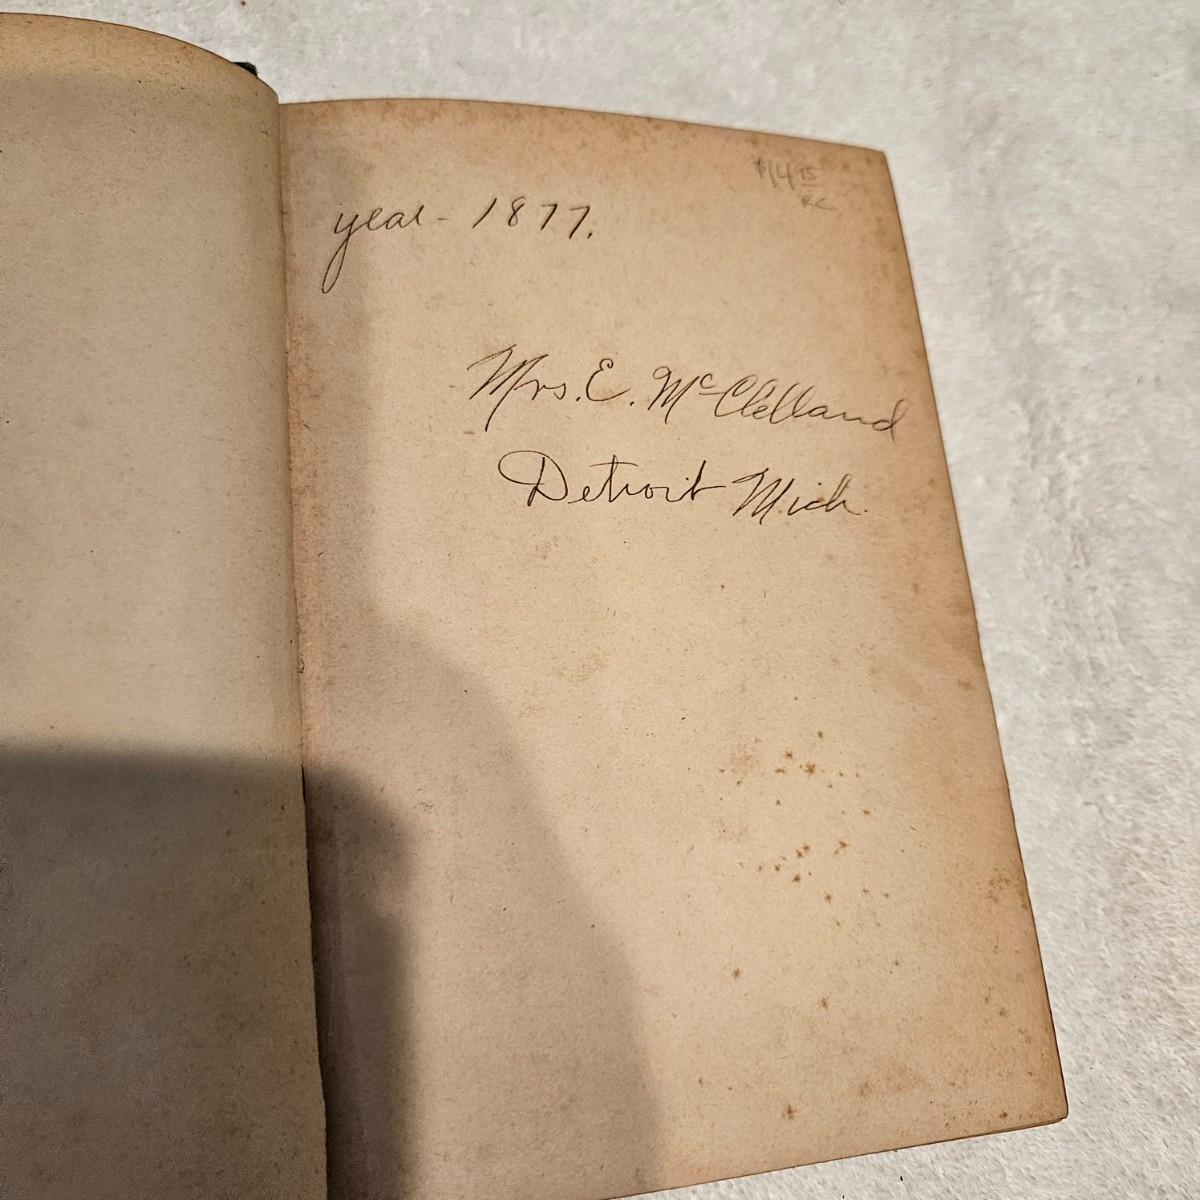 $14.95
RC
year - 1877.
Mrs. E. McClelland
Detroit Mich.